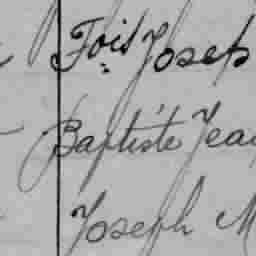 Fois Joseph
Baptiste Jean
Joseph M